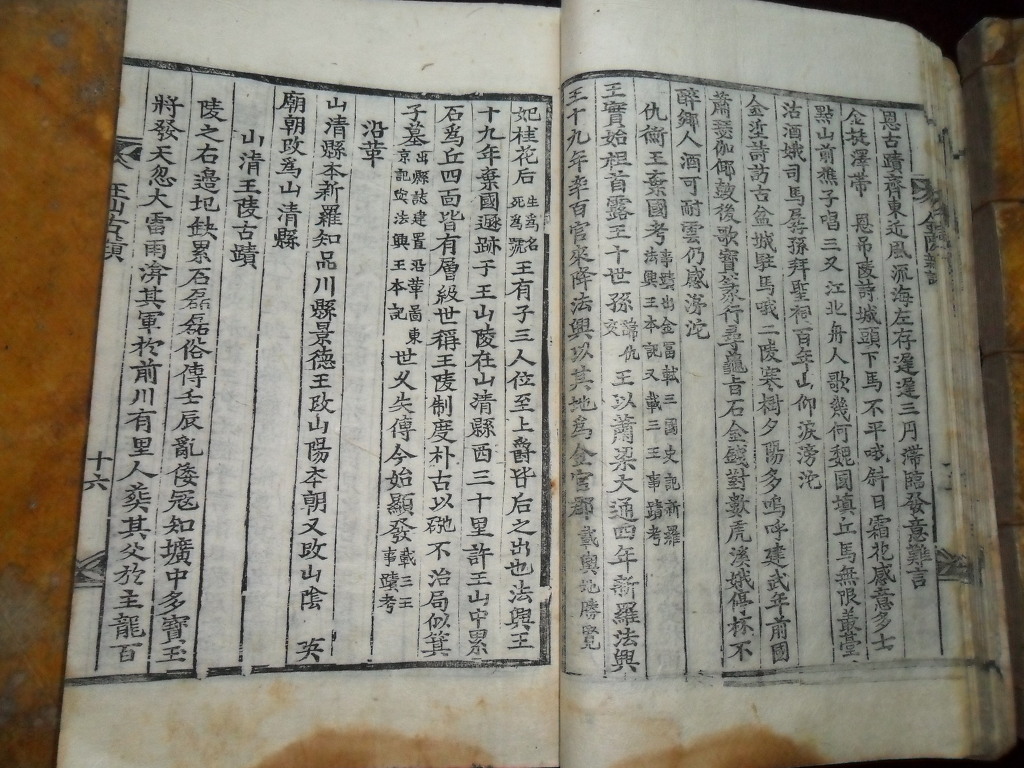 恩古蹟齊東近風流海左存遲遲三月滯臨發意難言
金挺澤帶 恩吊陵詩城頭下馬不平哦斜日霜花感意多七
點山前樵子唱三叉江北舟人歌幾何魏國填丘馬無限叢臺
沽酒娥司馬孱孫拜聖祠百年山仰淚滂沱
金近詩訪古盆城駐馬哦二陵寒樹夕陽多嗚呼建武年前國
蕭瑟伽倻鼓後歌寶篆行尋龜旨石金錢對數虎溪娥停杯不
醉鄉人酒可耐雲仍感滂沱
仇衡王棄國考事蹟出金富軾三國史記新羅法興王本記又載三王事蹟考
王實始祖首露王十世孫諱仇王以蕭梁大通四年新羅法興
王十九年率百官來降法興以其地爲金官郡載輿地勝覽
妃桂花后生爲名死爲號王有子三人位至上爵皆后之出也法興王
十九年棄國遯跡于王山陵在山清縣西三十里許王山中累
石爲丘四面皆有層級世稱王陵制度朴古以砌不治局似箕
子墓出縣誌建置沿革啚東京記曁法興王本記世乆失傳今始顯發載三王事蹟考
沿革
山清縣本新羅知品川縣景德王改山陽本朝又改山陰 英
廟朝改爲山清縣
山清王陵古蹟
陵之右邉圯缺累石磊磊俗傳壬辰亂倭冦知壙中多寶玉
將發天忽大雷雨濟其軍扵前川有里人葬其父扵主龍百
王山古蹟
十六